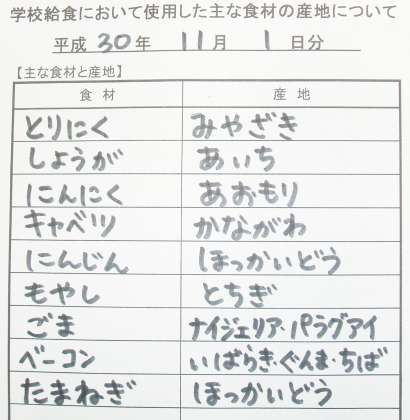 学校給食において使用した主な食材の産地について
平成 30 年 11 月 1 日分
【主な食材と産地】
食材 産地
とりにく みやざき
しょうが あいち
にんにく あおもり
キャベツ かながわ
にんじん ほっかいどう
もやし とちぎ
ごま ナイジェリア・パラグアイ
ベーコン いばらき・ぐんま・ちば
たまねぎ ほっかいどう